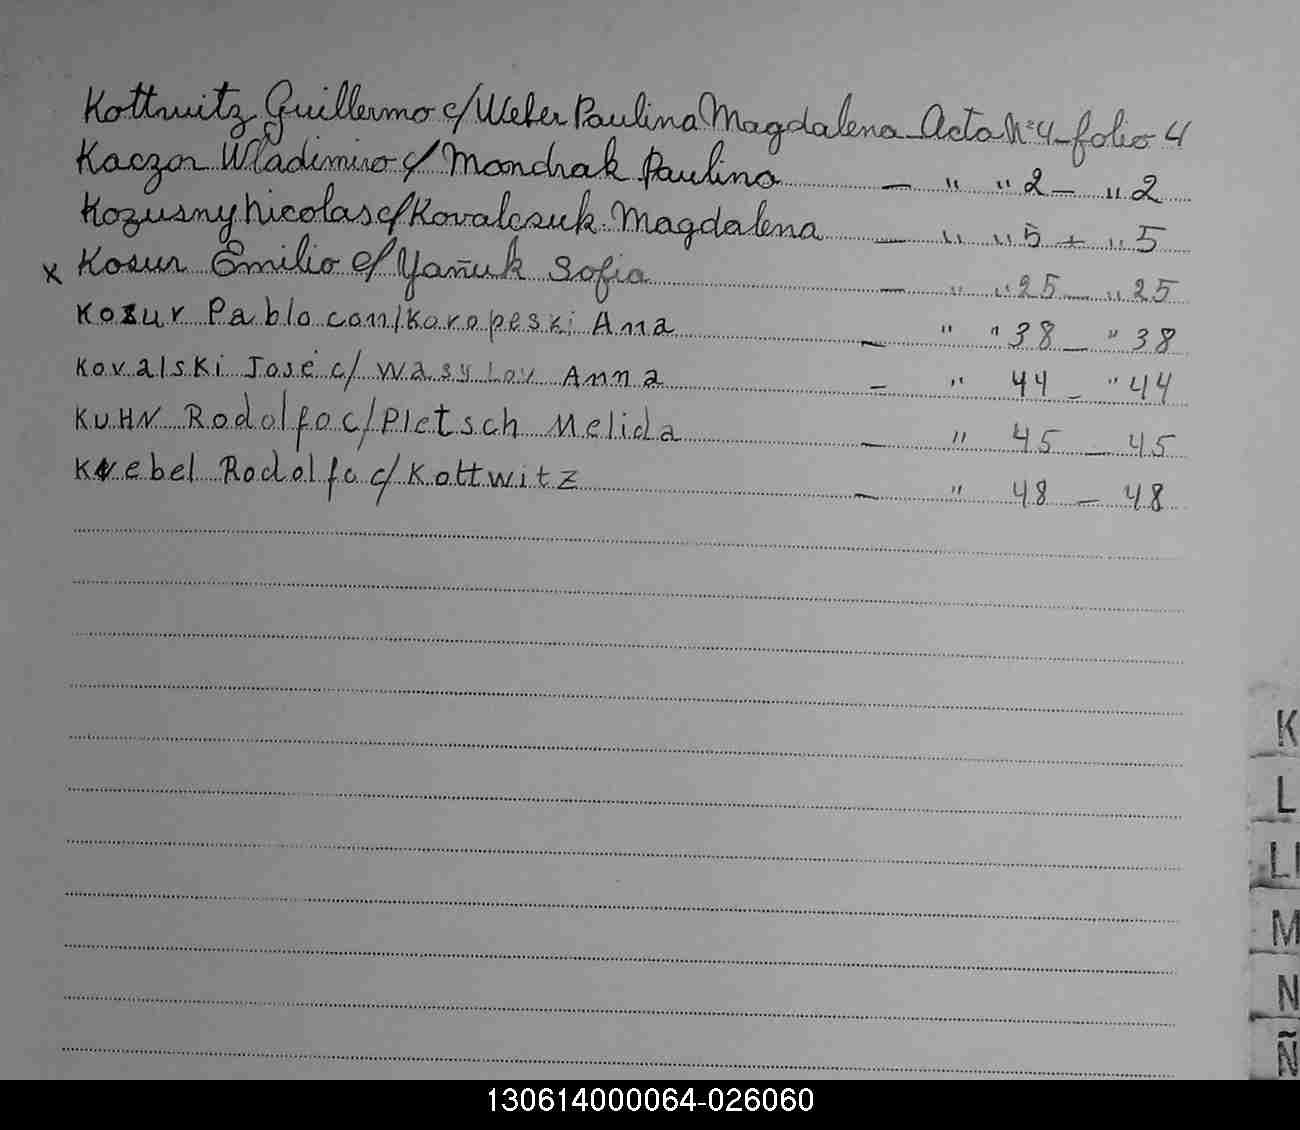 Kottwitz Guillermo c/ Weber Paulina Magdalena Acta Nº 4 - folio 4
Kaczor Wladimiro c/ Mondrak Paulina - " " 2 - " 2
Kozusny Nicolas c/ Kovalcsuk Magdalena - " " 5 - " 5
x Kosur Emilio c/ Yañuk Sofia - " " 25 - " 25
Kozur Pablo con/ Koropeski Ana - " " 38 - " 38
Kovalski José c/ Wasylov Anna - " 44 - " 44
KUHN Rodolfo c/ Pletsch Melida - " 45 - 45
Krebel Rodolfo c/ Kottwitz - " 48 - 48
K
L
Ll
M
N
Ñ
130614000064-026060